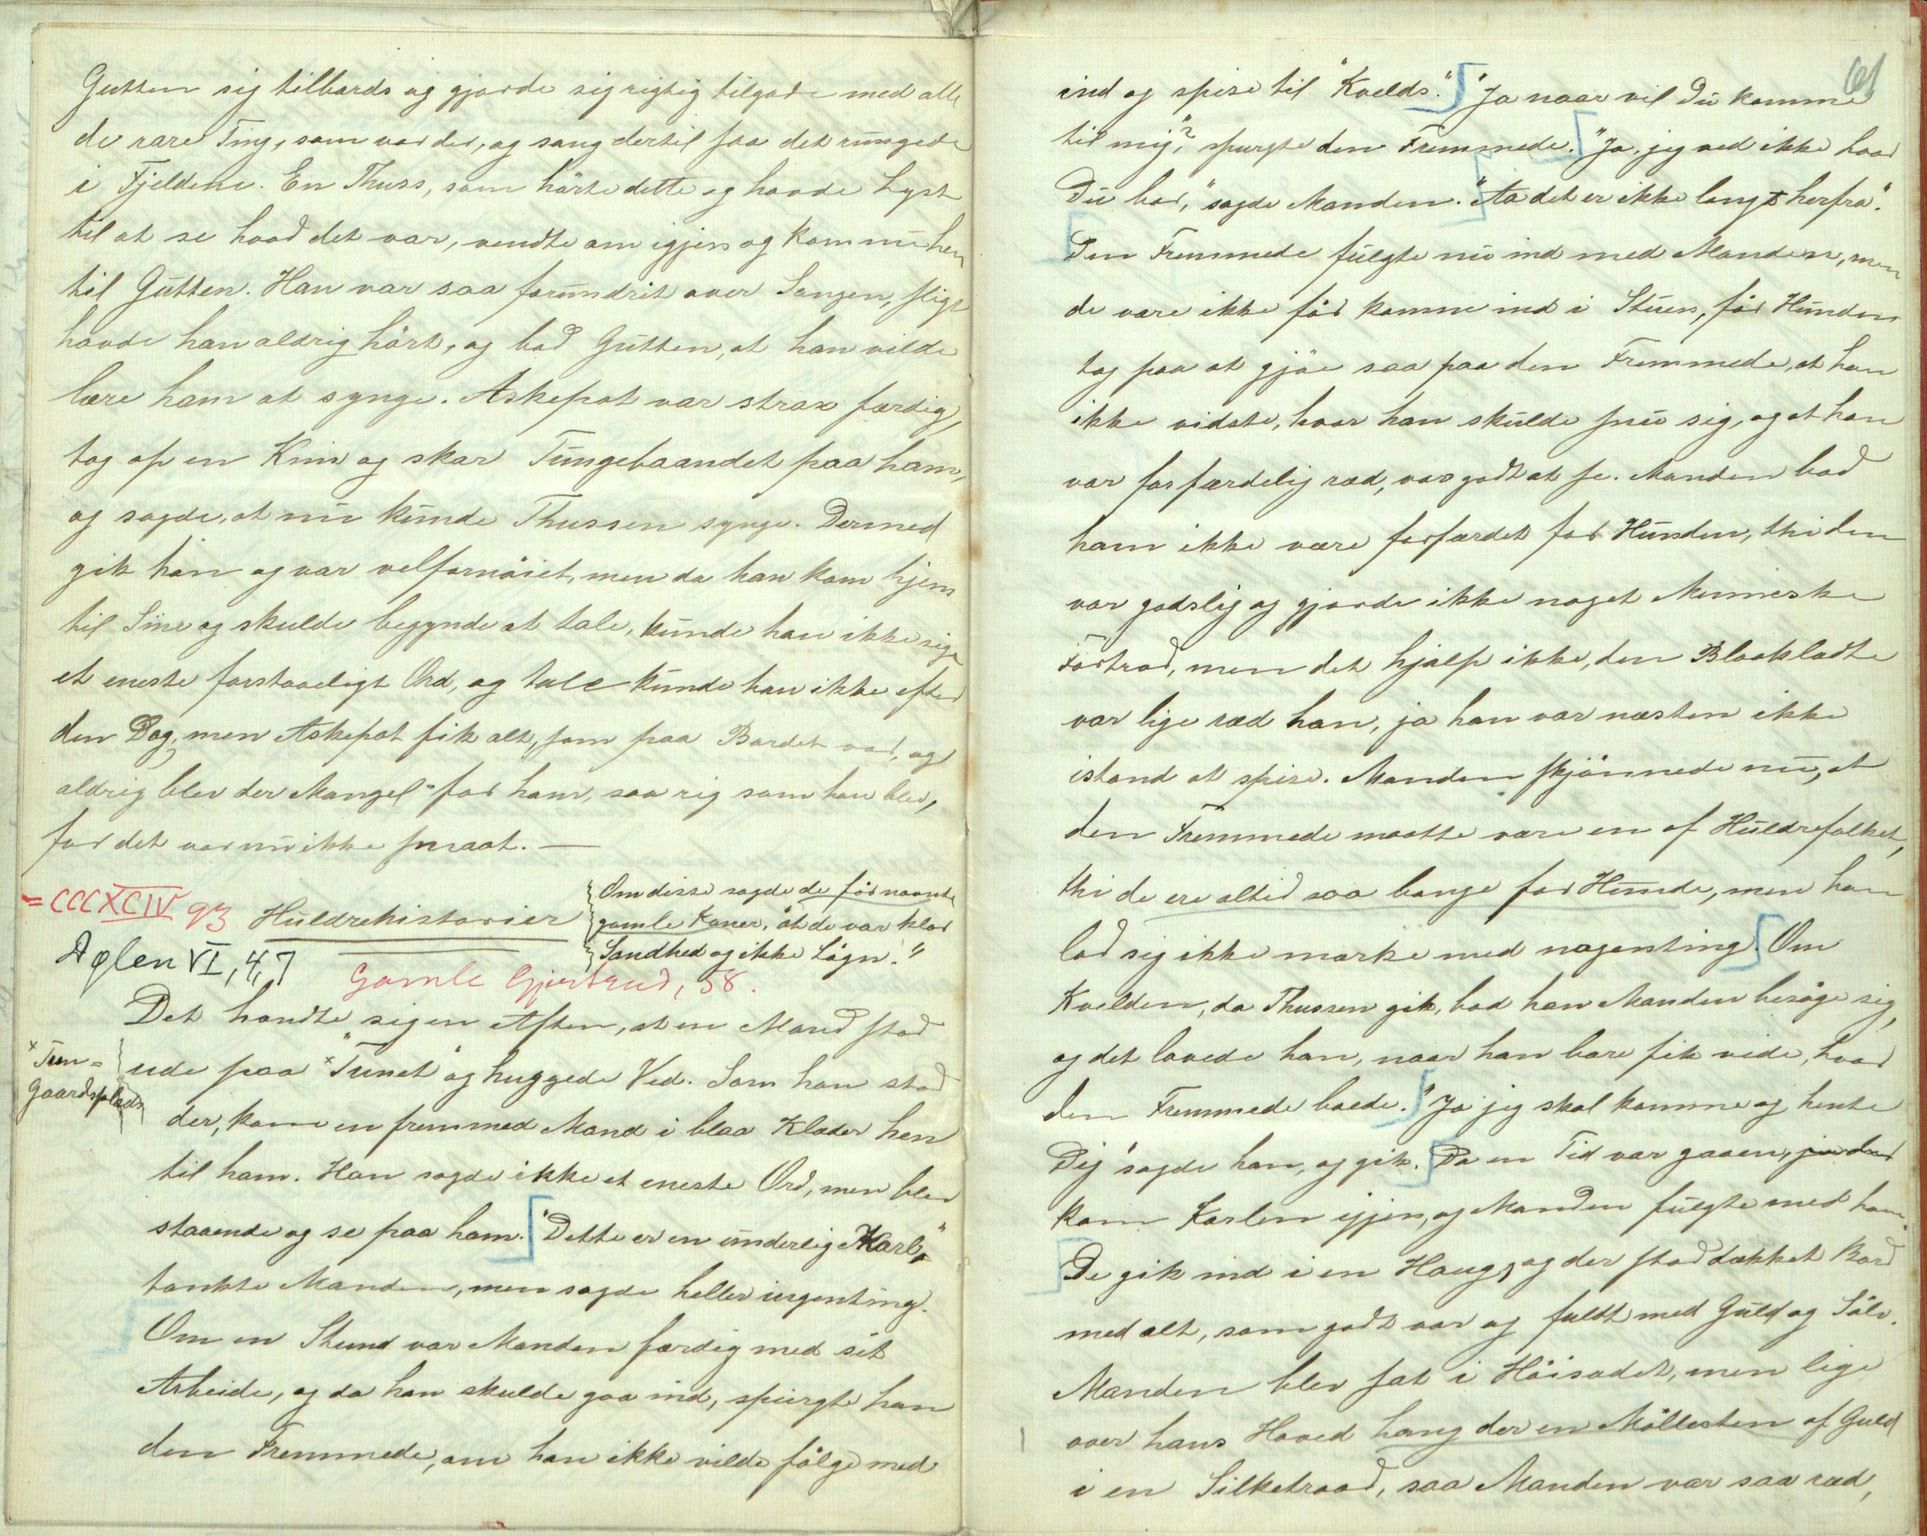 Gutten sig tilbords og gjorde sig rigtig tilgode med alle
de rare Ting, som var der, og sang dertil saa det rungede
i Fjeldene. En Thuss, som hörte dette og havde Lyst
til at se hvad det var, vendte om igjen og kom nu hen
til Gutten. Han var saa forundrit over Sangen, sligt
havde han aldrig hört, og bad Gutten, at han vilde
lære ham at synge. Askepot var strax færdig,
tog op en Kniv og skar Tungebaandet paa ham,
og sagde, at nu kunde Thussen synge. Dermed
gik han og var velfornöiet, men da han kom hjem
til Sine og skulde begynde at tale, kunde han ikke sige
et eneste forstaaeligt Ord, og tale kunde han ikke efter
den Dag, men Askepot fik alt, som paa Bordet var, og
aldrig blev der Mangel for ham, saa rig som han blev,
for det var nu ikke smaat. —
= CCCXCIV 93 Huldrehistorier
Om disse sagde de før nævnte
gamle Koner, "at de var klar
Sandhed og ikke Lögn."
Aglen VI, 4,7
Gamle Gjertrud, 58.
Det hændte sig en Aften, at en Mand stod
ude paa x"Tunet" og huggede Ved. Som han stod
x Tun =
Gaardsplads
der, kom en fremmed Mand i blaa Klæder hen
til ham. Han sagde ikke et eneste Ord, men blev
staaende og se paa ham. "Dette er en underlig Karl,"
tænkte Manden, men sagde heller ingenting.
Om en Stund var Manden færdig med sit
Arbeide, og da han skulde gaa ind, spurgte han
den Fremmede, om han ikke vilde fölge med
61
ind og spise til "Kvelds". "Ja naar vil Du komme
til mig"? spurgte den Fremmede. "Ja, jeg ved ikke hvor
Du bor," sagde Manden. "Aa det er ikke langt herfra".
Den Fremmede fulgte nu ind med Manden, men
de vare ikke för komne ind i Stuen, för Hunden
tog paa at gjöe saa paa den Fremmede, at han
ikke vidste, hvor han skulde snu sig, og at han
var forfærdelig ræd, var godt at se. Manden bad
ham ikke være forfærdet for Hunden, thi den
var godslig og gjorde ikke noget Menneske
Fortræd, men det hjalp ikke, den Blaaklædte
var lige ræd han, ja han var næsten ikke
istand at spise. Manden skjönnede nu, at
den Fremmede maatte være en af Huldrefolket,
thi de ere altid saa bange for Hunde, men han
lod sig ikke mærke med nogenting. Om
Kvelden, da Thussen gik, bad han Manden besöge sig,
og det lovede han, naar han bare fik vide, hvor
den Fremmede boede. "Ja jeg skal komme og hente
Dig" sagde han, og gik. Da en Tid var gaaen,
kom Karlen igjen, og Manden fulgte med ham.
De gik ind i en Haug, og der stod dækket Bord
med alt, som godt var og fuldt med Guld og Sölv.
Manden blev sat i Höisædet, men lige
over hans Hoved hang der en Möllesten af Guld
i en Silketraad, saa Manden var saa ræd,